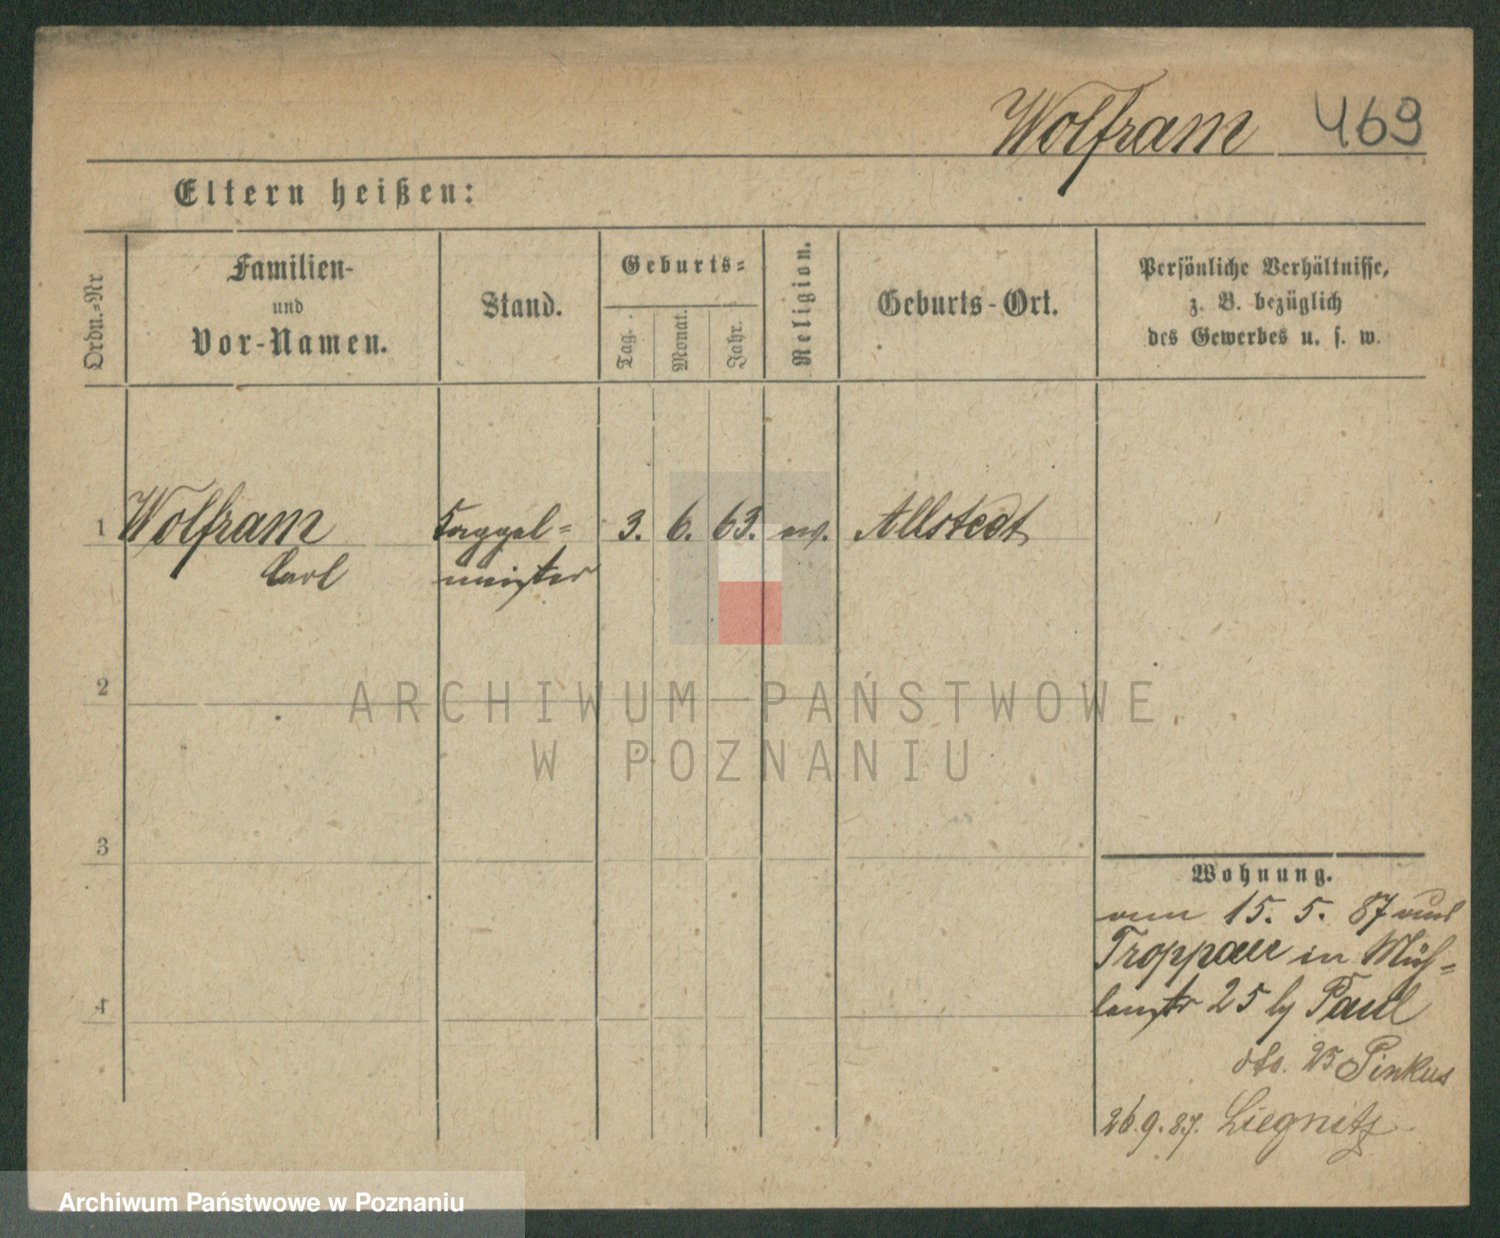 Wolfram 469
Eltern heißen:
Ordn.-Nr
Familien-
und
Vor-Namen.
Stand.
Geburts-
Tag.
Monat.
Jahr.
Religion.
Geburts-Ort.
Persönliche Verhältnisse,
z. B. bezüglich
des Gewerbes u. s. w.
1 Wolfram 3. 6. 63. ev. Allstedt
Carl meister
2
3
4
Wohnung.
15. 5. 87
Troppau in Müh-
lenstr 25 by Paul
dto. 25 Pinkus
26.9.87. Liegnitz
ARCHIWUM PAŃSTWOWE
W POZNANIU
Archiwum Państwowe w Poznaniu